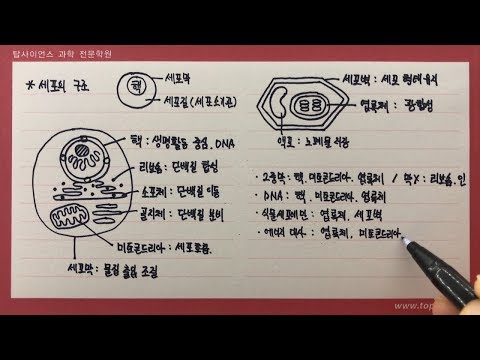 탑사이언스 과학 전문학원
* 세포의 구조
핵
세포막
세포질 (세포소기관)
핵 : 생명활동 중심, DNA
리보솜 : 단백질 합성
소포체 : 단백질 이동
골지체 : 단백질 분비
미토콘드리아 : 세포호흡
세포막 : 물질 출입 조절
세포벽 : 세포 형태 유지
엽록체 : 광합성
액포 : 노폐물 저장
· 2중막 : 핵, 미토콘드리아, 엽록체 / 막X : 리보솜, 인
· DNA : 핵, 미토콘드리아, 엽록체
· 식물세포에만 : 엽록체, 세포벽
· 에너지 대사 : 엽록체, 미토콘드리아
www.top